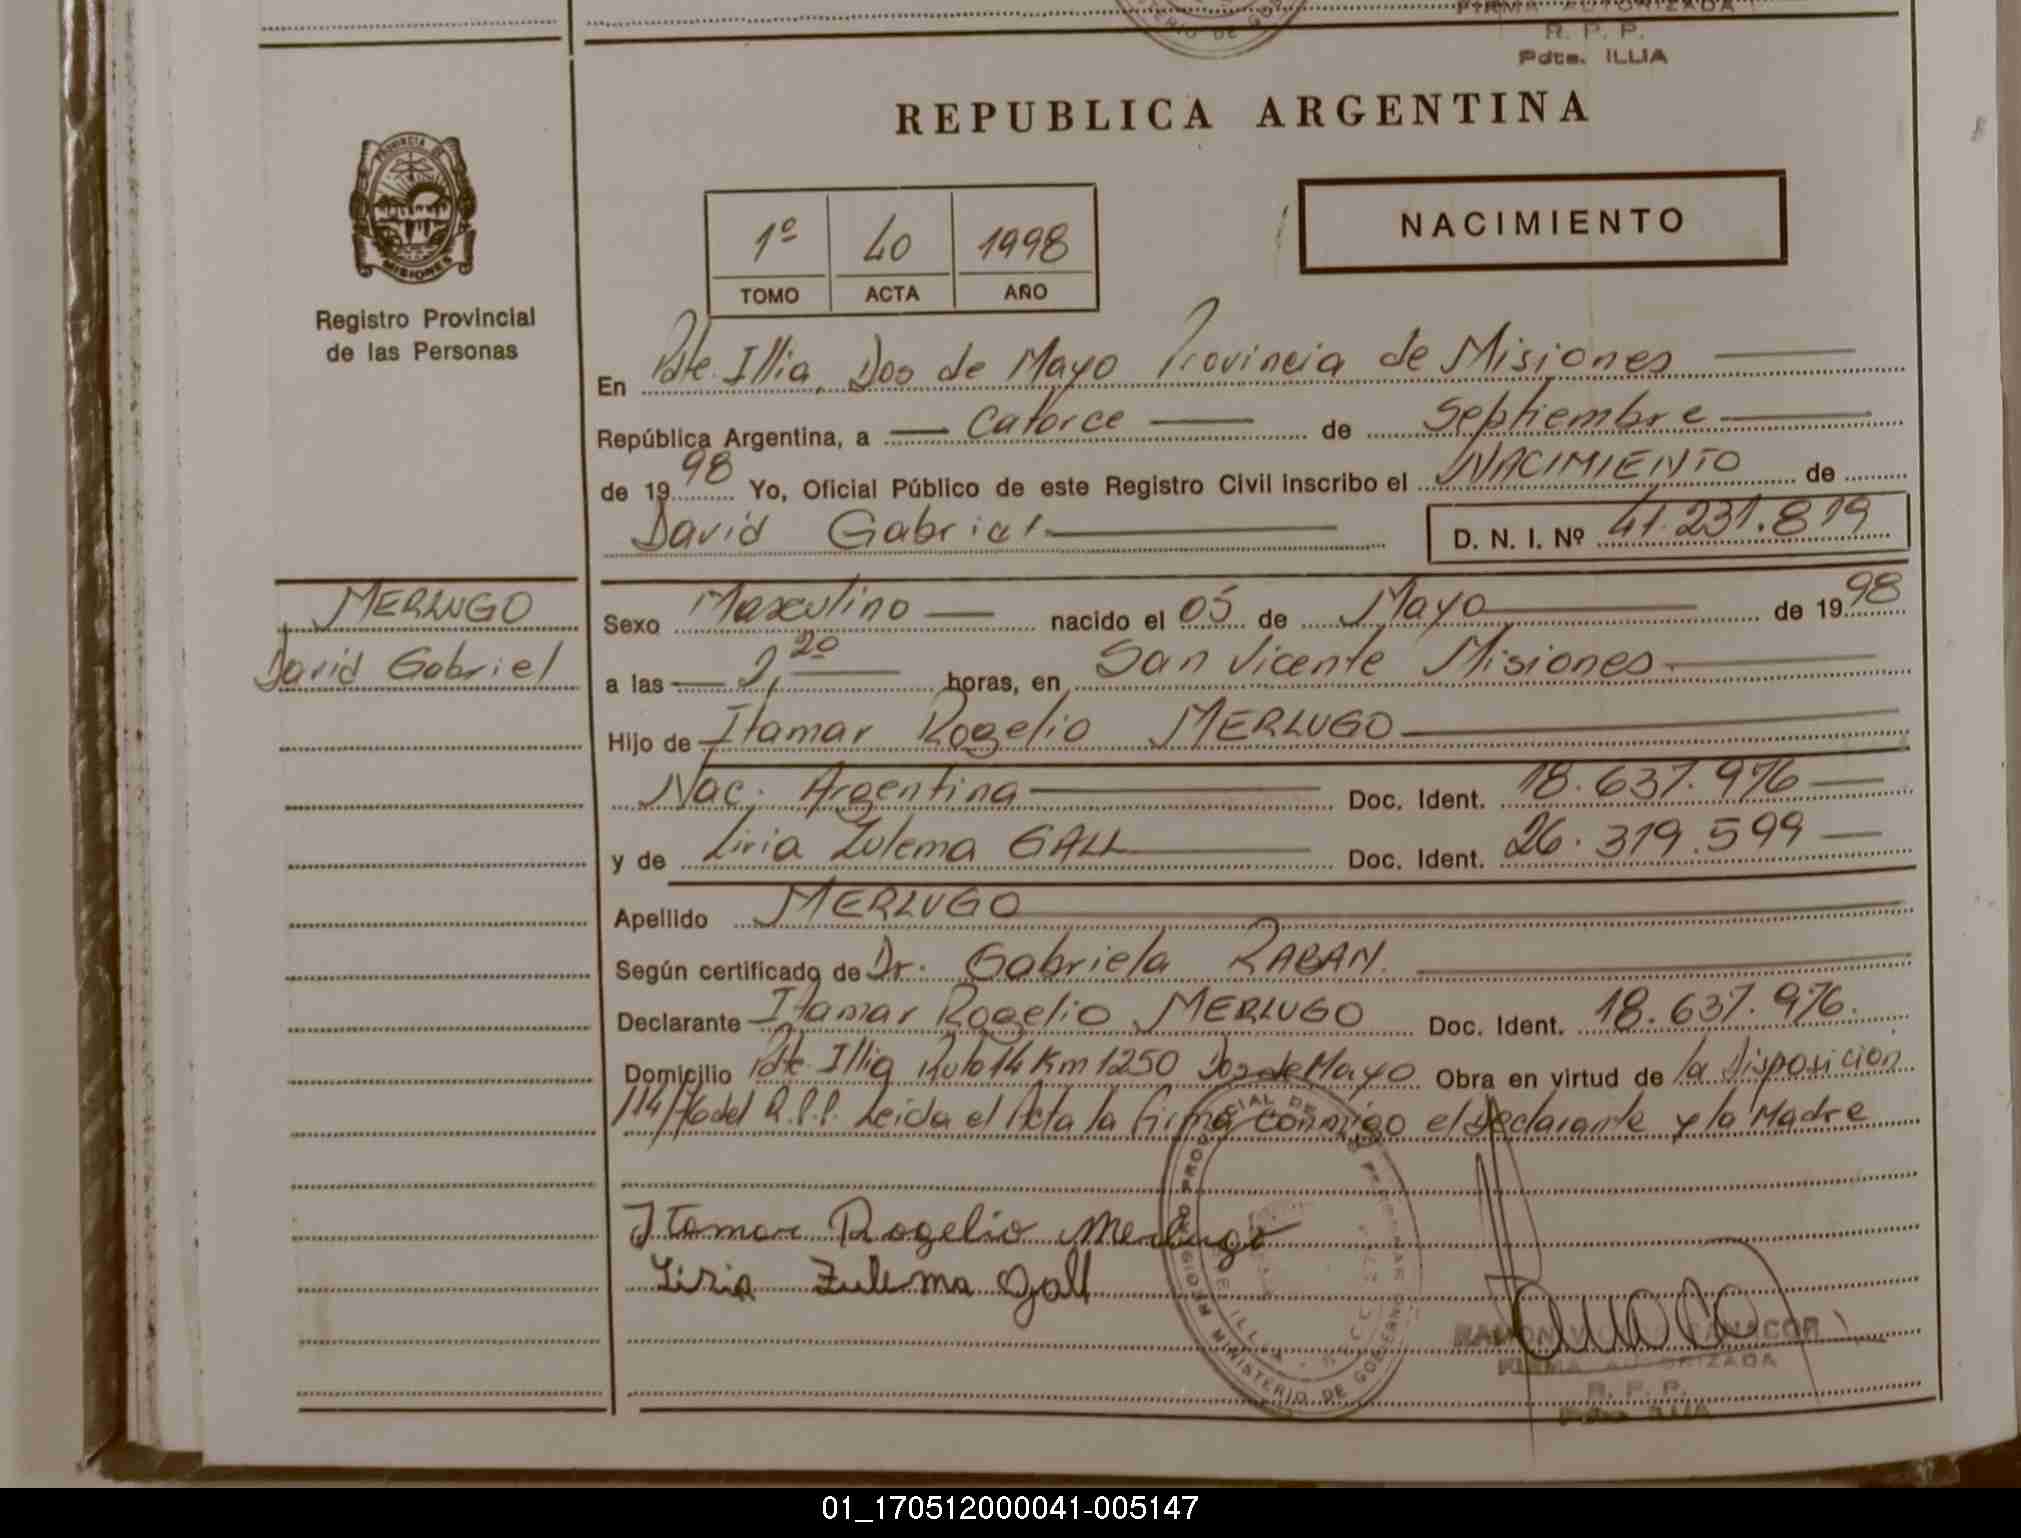 FIRMA AUTORIZADA
R. P. P.
Pdte. ILLIA
REPUBLICA ARGENTINA
PROVINCIA DE
MISIONES
Registro Provincial
de las Personas
1º 40 1998
TOMO ACTA AÑO
NACIMIENTO
En Pdte. Illia, Dos de Mayo Provincia de Misiones
República Argentina, a Catorce de Septiembre
de 1998 Yo, Oficial Público de este Registro Civil inscribo el NACIMIENTO de
David Gabriel D. N. I. Nº 41.231.819
MERLUGO
David Gabriel
Sexo Masculino nacido el 05 de Mayo de 1998
a las 2,20 horas, en San Vicente Misiones
Hijo de Itamar Rogelio MERLUGO
Nac. Argentina Doc. Ident. 18.637.976
y de Liria Zulema GALL Doc. Ident. 26.319.599
Apellido MERLUGO
Según certificado de Dr. Gabriela RABAN.
Declarante Itamar Rogelio MERLUGO Doc. Ident. 18.637.976.
Domicilio Pdte. Illia Ruta 14 Km 1250 Dos de Mayo Obra en virtud de la Disposicion
114/76 del R.P.P. Leida el Acta la firma conmigo el Declarante y la Madre
Itamar Rogelio Merlugo
Liria Zulema Gall
REGISTRO PROVINCIAL DE LAS PERSONAS
MINISTERIO DE GOBIERNO
FIRMA AUTORIZADA
R. P. P.
Pdte. ILLIA
01_170512000041-005147